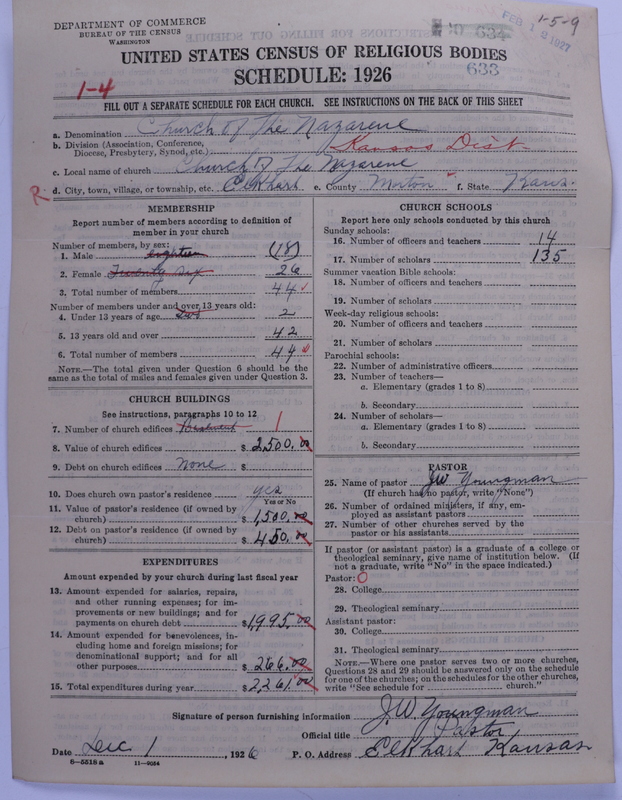 DEPARTMENT OF COMMERCE
BUREAU OF THE CENSUS
WASHINGTON
FEB 12 1927
1-5-9
UNITED STATES CENSUS OF RELIGIOUS BODIES
633
SCHEDULE: 1926
1-4
FILL OUT A SEPARATE SCHEDULE FOR EACH CHURCH. SEE INSTRUCTIONS ON THE BACK OF THIS SHEET
a. Denomination Church of The Nazarene
b. Division (Association, Conference, Diocese, Presbytery, Synod, etc.) Kansas Dist
c. Local name of church Church of The Nazarene
R d. City, town, village, or township, etc. Elkhart e. County Morton f. State Kans.
MEMBERSHIP
Report number of members according to definition of
member in your church
Number of members, by sex:
1. Male eighteen (18)
2. Female Twenty six 26
3. Total number of members 44
Number of members under and over 13 years old:
4. Under 13 years of age 2
5. 13 years old and over 42
6. Total number of members 44
NOTE.—The total given under Question 6 should be
same as the total of males and females given under Question 3.
CHURCH BUILDINGS
See instructions, paragraphs 10 to 12
7. Number of church edifices 1
8. Value of church edifices $ 2,500.00
9. Debt on church edifices None $
10. Does church own pastor's residence yes
Yes or No
11. Value of pastor's residence (if owned by
church) $ 1,500.00
12. Debt on pastor's residence (if owned by
church) $ 450.00
EXPENDITURES
Amount expended by your church during last fiscal year
13. Amount expended for salaries, repairs,
and other running expenses; for im-
provements or new buildings; and for
payments on church debt $ 1,995.00
14. Amount expended for benevolences, in-
cluding home and foreign missions; for
denominational support; and for all
other purposes $ 266.00
15. Total expenditures during year $ 2,261.00
CHURCH SCHOOLS
Report here only schools conducted by this church
Sunday schools:
16. Number of officers and teachers 14
17. Number of scholars 135
Summer vacation Bible schools:
18. Number of officers and teachers
19. Number of scholars
Week-day religious schools:
20. Number of officers and teachers
21. Number of scholars
Parochial schools:
22. Number of administrative officers
23. Number of teachers—
a. Elementary (grades 1 to 8)
b. Secondary
24. Number of scholars—
a. Elementary (grades 1 to 8)
b. Secondary
PASTOR
25. Name of pastor J.W. Youngman
(If church has no pastor, write "None")
26. Number of ordained ministers, if any, em-
ployed as assistant pastors
27. Number of other churches served by the
pastor or his assistants
If pastor (or assistant pastor) is a graduate of a college or
theological seminary, give name of institution below. (If
not a graduate, write "No" in the space indicated.)
Pastor: O
28. College
29. Theological seminary
Assistant pastor:
30. College
31. Theological seminary
NOTE.—Where one pastor serves two or more churches,
Questions 28 and 29 should be answered only on the schedule
for one of the churches; on the schedules for the other churches,
write "See schedule for church."
Signature of person furnishing information J.W. Youngman
Official title Pastor
Date Dec 1, 1926 P. O. Address Elkhart Kansas
8-5518 a 11-9064